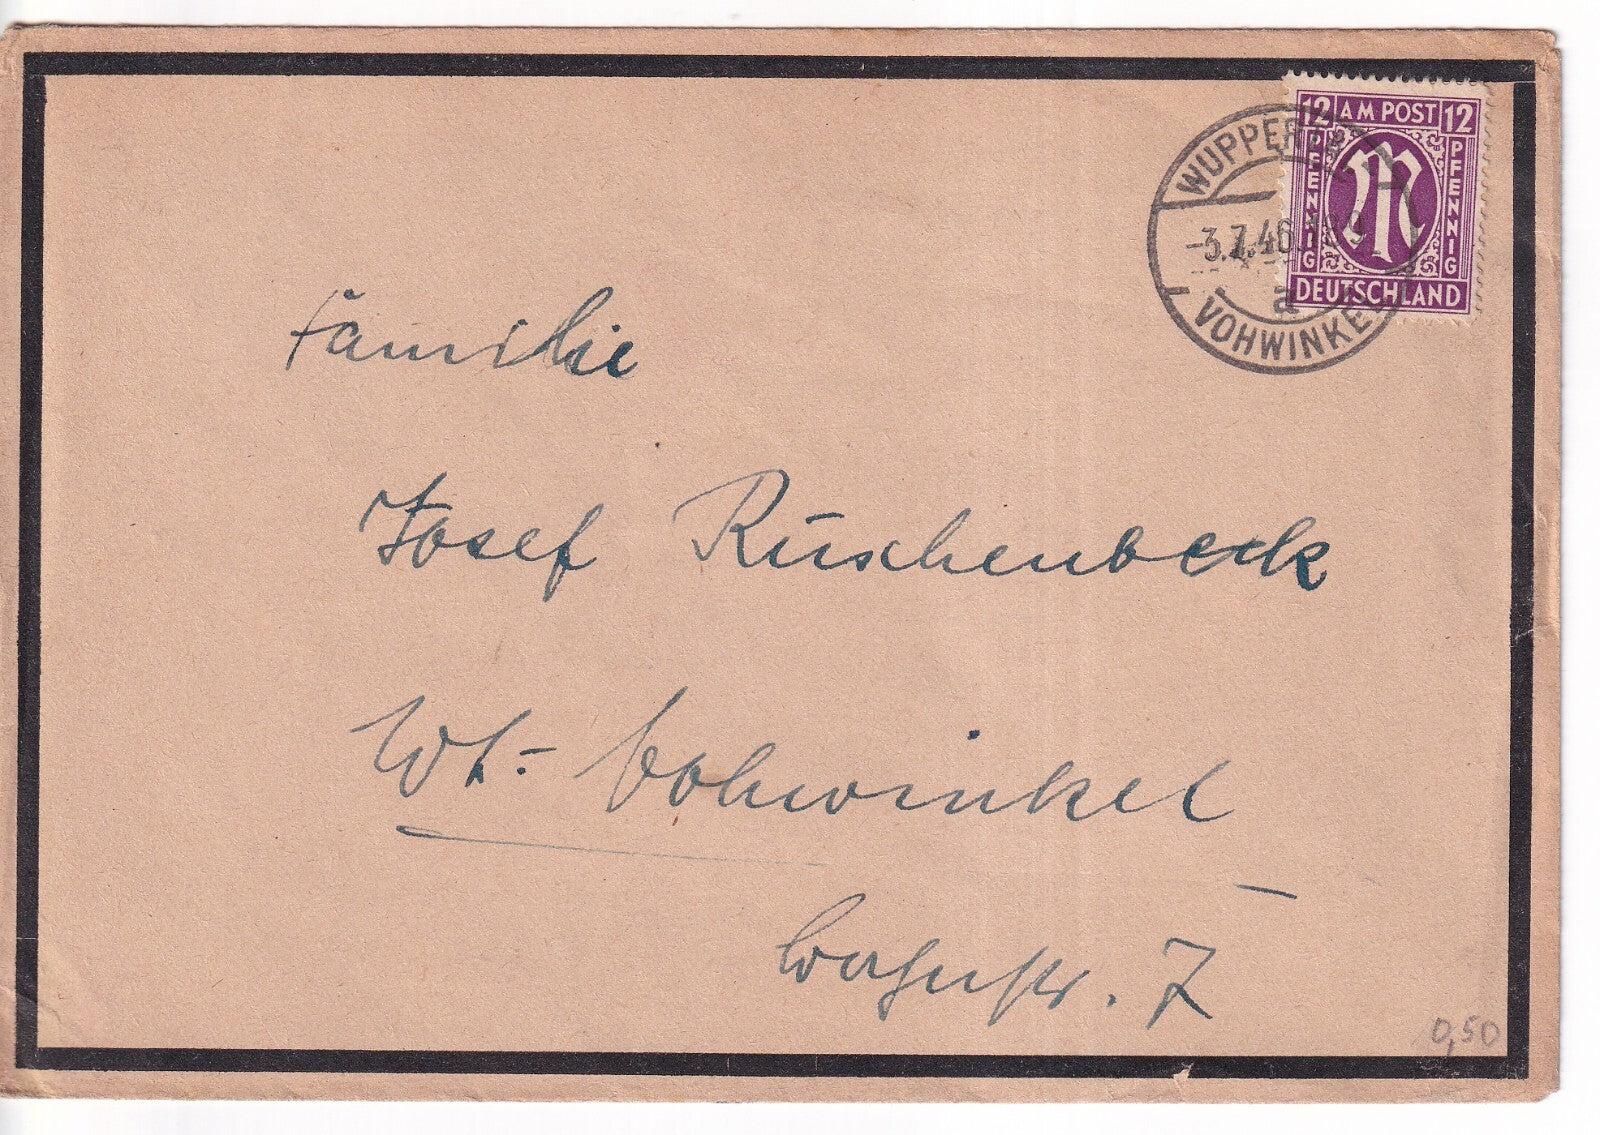 12 AM POST 12
PFENNIG PFENNIG
DEUTSCHLAND
WUPPERT
-3.7.46
a
VOHWINKEL
Familie
Josef Rüschenbeck
Wt.- Vohwinkel
7
0,50